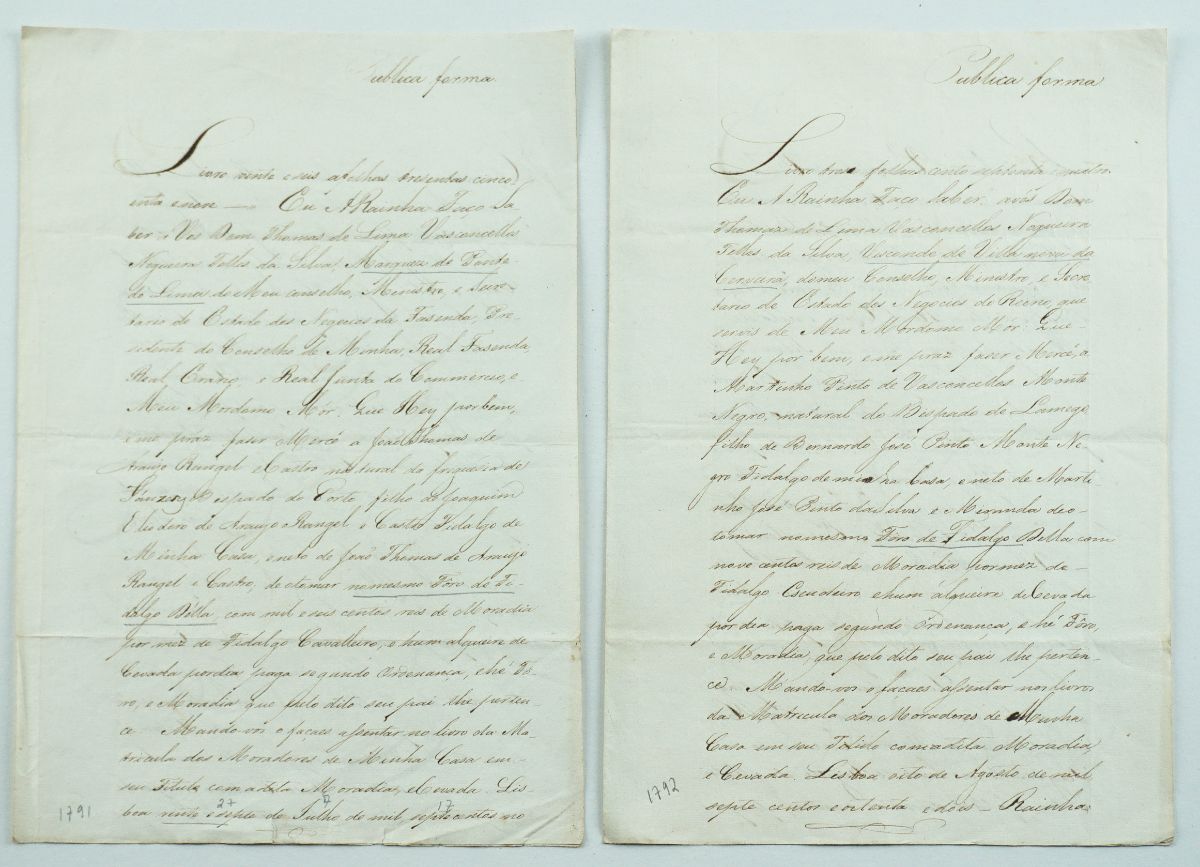 Publica forma.
Livro vinte e seis a folhas tresentas cinco
enta e nove — Eu A Rainha Faço Sa
ber a Vós Dom Thomas de Lima Vasconcellos
Nogueira Telles da Silva, Marquez de Ponte
de Lima do Meu conselho, Ministro, e Secre
tario de Estado dos Negocios da Fasenda, Pre-
sidente do Conselho de Minha Real Fasenda,
Real Erario, e Real Junta do Commercio, e
Meu Mordomo Mór. Que Hey por bem,
e me praz faser Mercê a João Thomas de
Araujo Rangel e Castro natural da freguesia de
Bispado do Porto filho de Joaquim
de Araujo Rangel e Castro Fidalgo de
Minha Casa, e neto de João Thomas de Araujo
Rangel e Castro, de o tomar no mesmo Fôro de Fi-
dalgo Della com mil e seis centos reis de Moradia
por mez de Fidalgo Cavalleiro, e hum alqueire de
Cevada por dia paga segundo Ordenança, e hé Fo-
ro, e Moradia que pelo dito seu pai lhe perten-
ce. Mando-vos o façaes assentar no livro da Ma-
tricula dos Moradores de Minha Casa em
seu Titulo com a dita Moradia, e Cevada. Lis-
27 7 17
boa vinte e septe de Julho de mil septecentos no
1791
Publica forma
Livro tres folhas cento septenta e quatro
Eu A Rainha Faço saber a vós Dom
Thomaz de Lima Vasconcellos Nogueira
Telles da Silva, Visconde de Villa nova da
Cerveira, do meu Conselho, Ministro, e Secre
tario de Estado dos Negocios do Reino, que
servis de Meu Mordomo Mór: Que
Hey por bem, e me praz faser Mercê, a
Martinho Pinto de Vasconcellos Monte
Negro, natural do Bispado de Lamego,
filho de Bernardo José Pinto Monte Ne
gro Fidalgo de minha Casa, e neto de Marti
nho José Pinto da Silva e Miranda de o
tomar no mesmo Fôro de Fidalgo Della com
nove centos reis de Moradia por mez de
Fidalgo Escudeiro e hum alqueire de Cevada
por dia paga segundo Ordenança, e hé Fôro,
e Moradia, que pelo dito seu pai lhe perten-
ce. Mando-vos o façaes assentar nos livros
da Matricula dos Moradores de Minha
Casa em seu Titulo com a dita Moradia,
e Cevada. Lisboa oito de Agosto de mil
septe centos e oitenta e dois — Rainha
1792